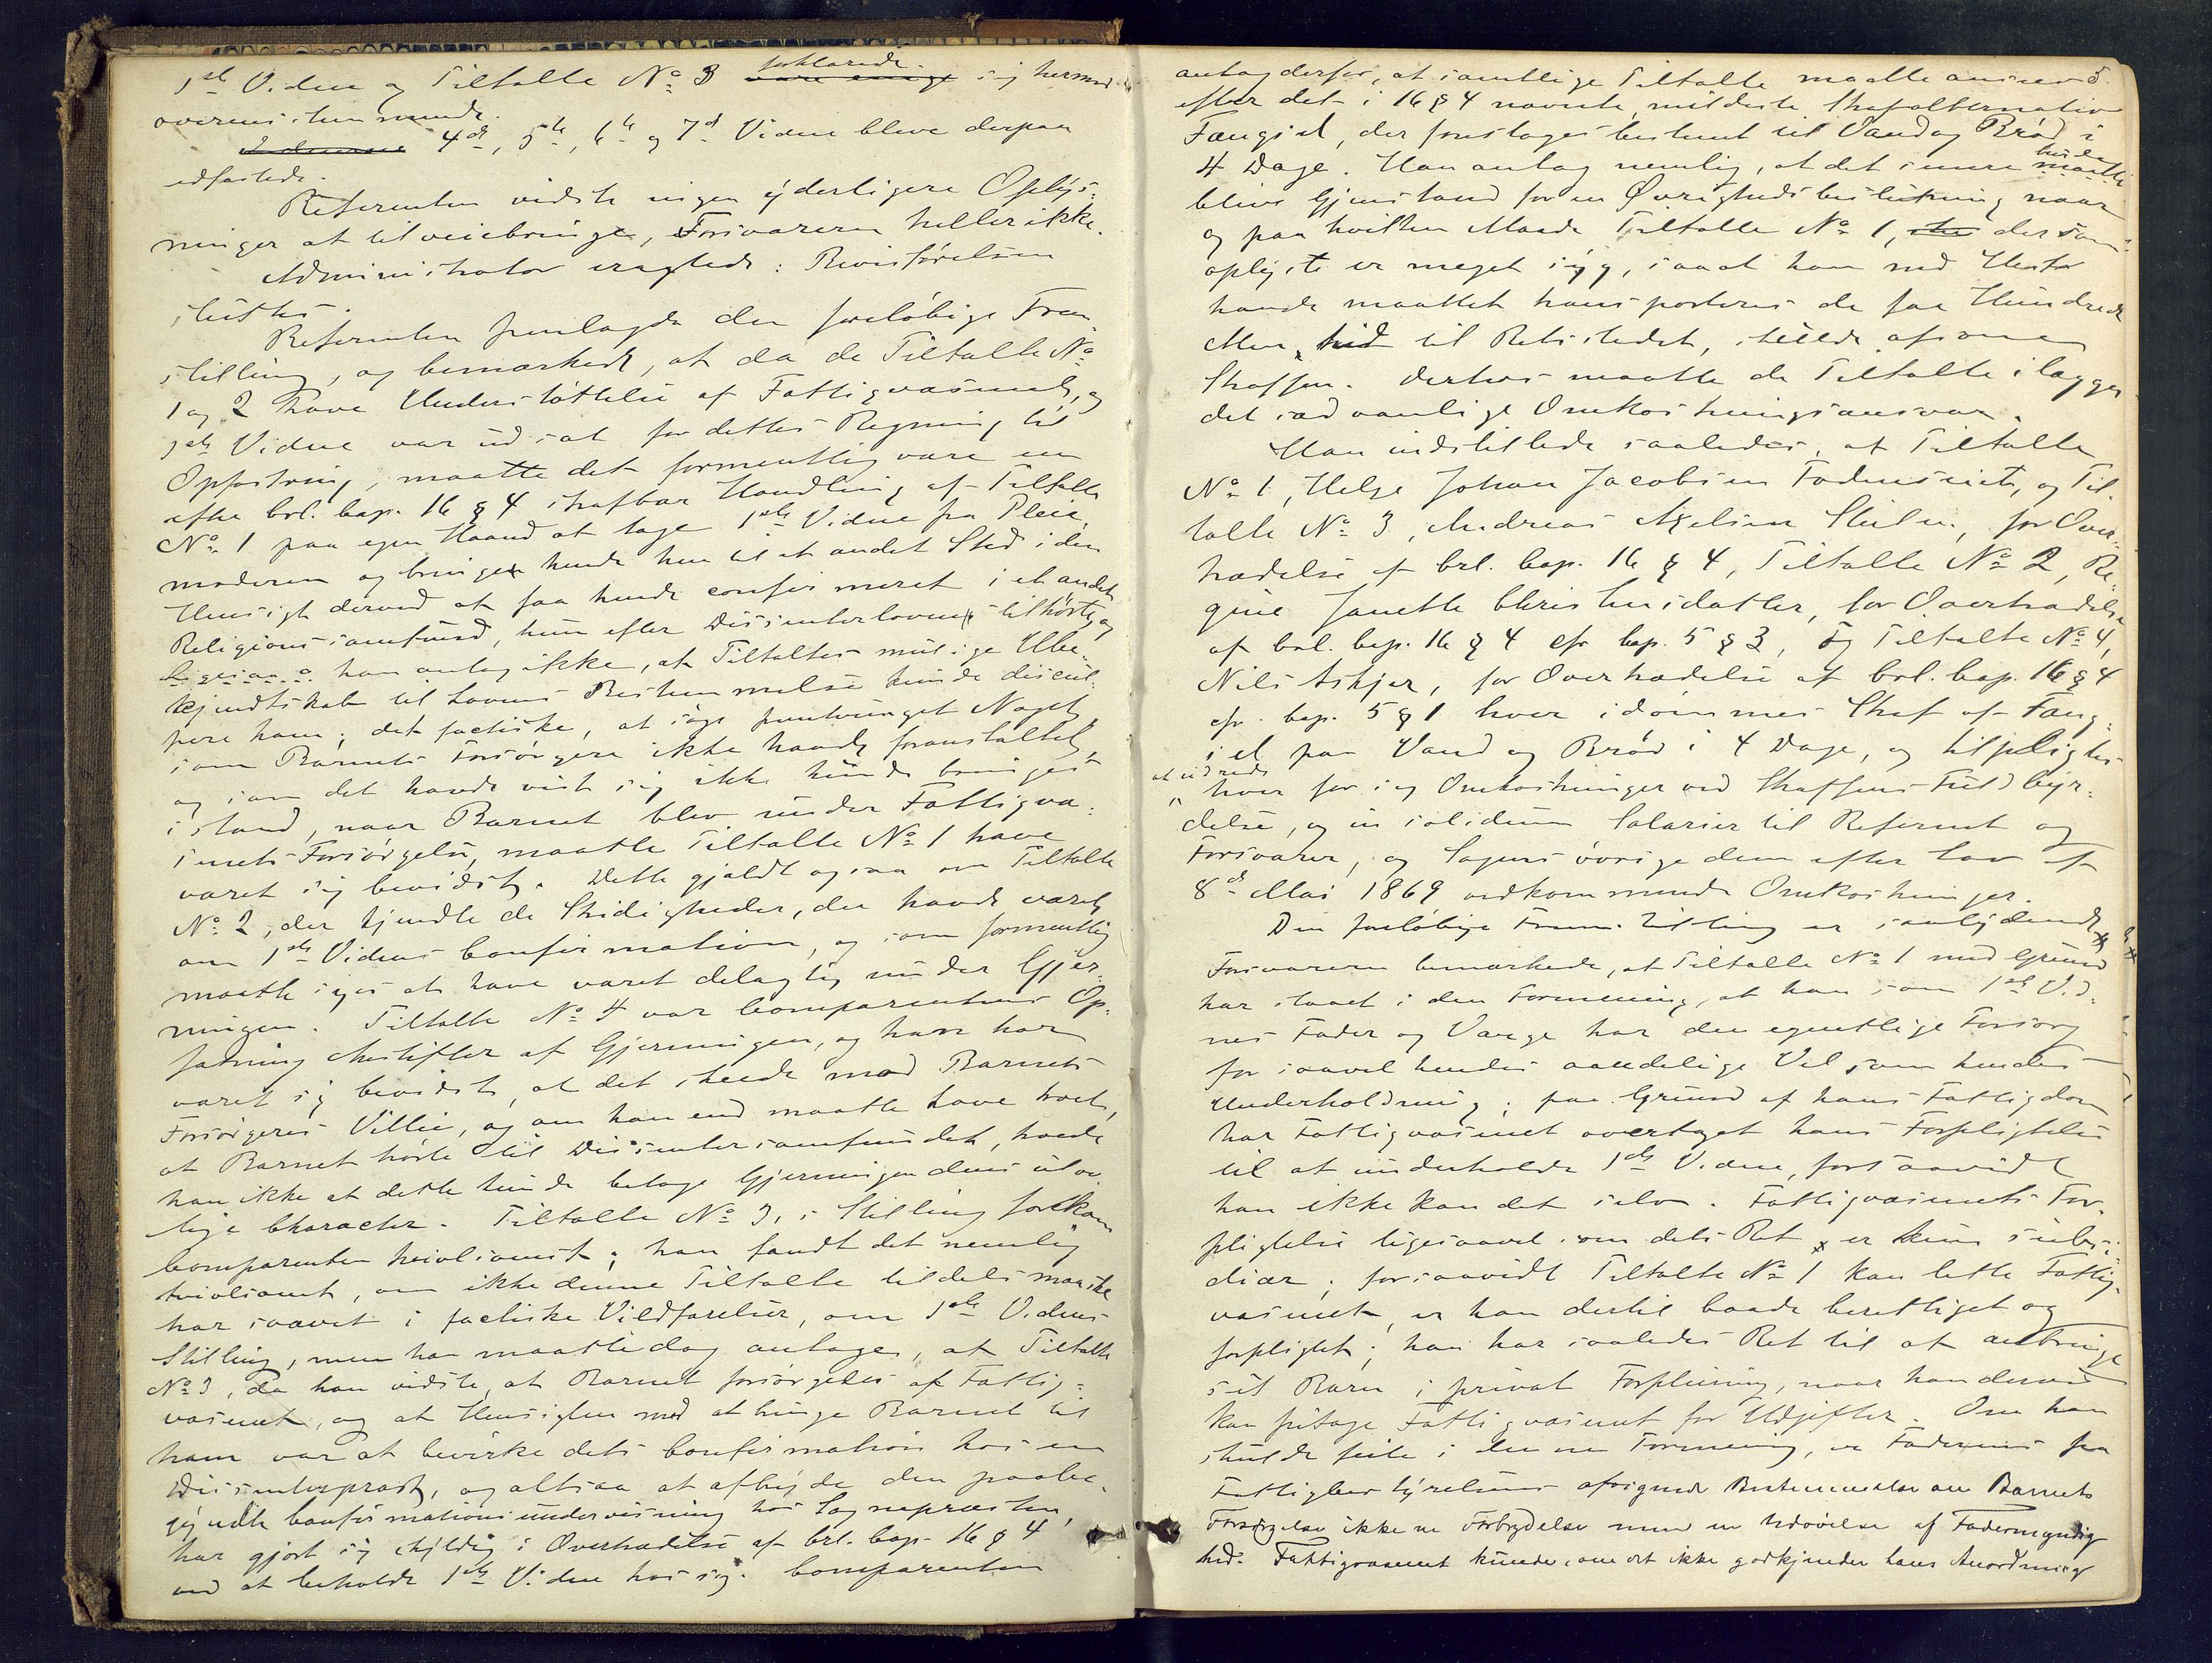 1ste Vidne og Tiltalte No 3 vare enige forklarede sig hermed
overensstemmende.
4de, 5te, 6te og 7de Vidne bleve derpaa
edfæstede.
Referenten vidste ingen yderligere Oplys-
ninger at tilveiebringe, Forsvareren heller ikke.
Administrator eragtede: Bevisførelsen
sluttes.
Referenten fremlagde den foreløbige Frem-
stilling, og bemærkede, at da de Tiltalte No
1 og 2 have Understøttelse af Fattigvæsenet, og
1ste Vidne var udsat for dettes Regning til
Opfostring, maatte det formentlig være en
efter Crl. Cap. 16 § 4 strafbar Handling af Tiltalte
No 1 paa egen Haand at tage 1ste Vidne fra Pleie-
moderen og bringe hende hen til et andet Sted i den
Hensigt derved at faa hende confirmeret i et andet
Religionssamfund, hun efter Dissenterloven tilhørte, og
han antog ikke, at Tiltaltes mulige Ube-
kjendtskab til Lovens Bestemmelse kunde discul-
pere ham; det factiske, at søge fremtvunget Noget,
som Barnets Forsørgere ikke havde foranstaltet,
og som det havde vist sig ikke kunde bringes
istand, naar Barnet blev under Fattigvæ-
senets Forsørgelse, maatte Tiltalte No 1 have
været sig bevidst. Dette gjaldt ogsaa om Tiltalte
No 2, der kjendte de Stridigheder, der havde været
om 1ste Vidnes Confirmation, og som formentlig
maatte siges at have været delagtig under Gjer-
ningen. Tiltalte No 4 var Comparentens Op-
fatning Anstifter af Gjerningen, og han har
været sig bevidst, at det skede mod Barnets
Forsørgeres Villie, og om han end maatte have troet,
at Barnet hørte til Dissentersamfundet, havde
han ikke at dette kunde betage Gjerningen dens ulov-
lige Character. Tiltalte No 3's Stilling forekom
Comparenten tvivlsomst; han fandt det nemlig
tvivlsomt, om ikke denne Tiltalte tildels maaske
har svævet i factiske Vildfarelser, om 1ste Vidnes
Stilling, men han maatte dog antages, at Tiltalte
No 3, da han vidste, at Barnet forsørgedes af Fattig-
væsenet, og at Hensigten med at bringe Barnet til
ham var at bevirke dets Confirmation hos en
Dissenterprest, og altsaa at afbryde den paabe-
gyndte Confirmationsundervisning hos Sognepræsten,
har gjort sig skyldig i Overtrædelse af Crl. Cap. 16 § 4
ved at beholde 1ste Vidne hos sig. Comparenten
5.
antog derfor, at samtlige Tiltalte maatte ansees
efter det i 16 § 4 nævnte, mildeste Strafalternativ
Fængsel, der foresloges bestemt til Vand og Brød i
4 Dage. Han antog nemlig, at det senere burde
blive Gjenstand for en Øvrighedsbeslutning naar
og paa hvilken Maade Tiltalte No 1, der som
oplyst er meget syg, saa at han med Heste
havde maattet transporteres de faa Hundrede
Alen hid til Retsstedet, skulde afsone
Straffen. Derhos maatte de Tiltalte ilægges
det sædvanlige Omkostningsansvar.
Han indstillede saaledes, at Tiltalte
No 1, Helge Johan Jacobsen Fodnæseiet, og Til-
talte No 3, Andreas Axelsen, for Over-
trædelse af Crl. Cap. 16 § 4, Tiltalte No 2, Re-
gine Janette Christensdatter, for Overtrædelse
af Crl. Cap. 16 § 4 cfr Cap. 5 § 3, og Tiltalte No 4,
Nils Askjer, for Overtrædelse af Crl. Cap. 16 § 4
cfr. Cap. 5 § 1 hver idømmes Straf af Fæng-
sel paa Vand og Brød i 4 Dage, og tilpligtes
at udrede
hver for sig Omkostninger ved Straffens Fuldbyr-
delse, og in solidum Salarier til Referent og
Forsvarer, og Sagens øvrige dem efter Lov af
8de Mai 1869 vedkommende Omkostninger.
Den foreløbige Fremstilling er saalydende
Forsvareren bemærkede, at Tiltalte No 1 med Grund
har staaet i den Formening, at han som 1ste Vid-
nes Fader og Værge har den egentlige Forsorg
for saavel hendes aandelige Vel som hendes
Underholdning; paa Grund af hans Fattigdom
har Fattigvæsenet overtaget hans Forpligtelse
til at underholde 1ste Vidne, forsaavidt
han ikke kan det selv. Fattigvæsenets For-
pligtelse ligesaavel som dets Ret er kun subsi-
diær; forsaavidt Tiltalte No 1 kan lette Fattig-
væsenet, er han dertil baade berettiget og
forpligtet; han har saaledes Ret til at anbringe
sit Barn i privat Forpleining, naar han derved
kan fritage Fattigvæsenet for Udgifter. Om han
skulde feile i denne Formening, er Faderens fra
Fattigbestyrelsens afvigende Bestemmelse om Barnets
Forsørgelse ikke en Forbrydelse men en Udøvelse af Fadermyndig
hed. Fattigvæsenet kunde, om det ikke godkjender hans Anordning